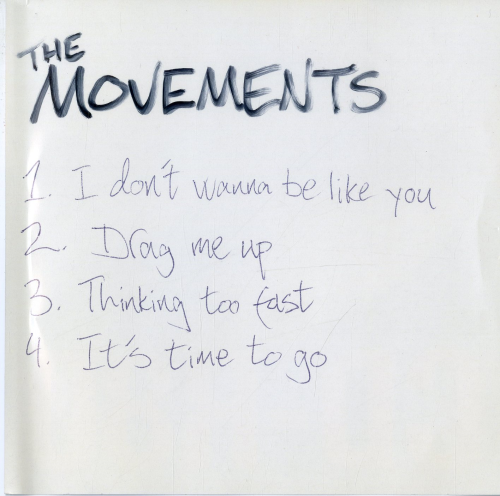 THE
MOVEMENTS
1. I don't wanna be like you
2. Drag me up
3. Thinking too fast
4. It's time to go